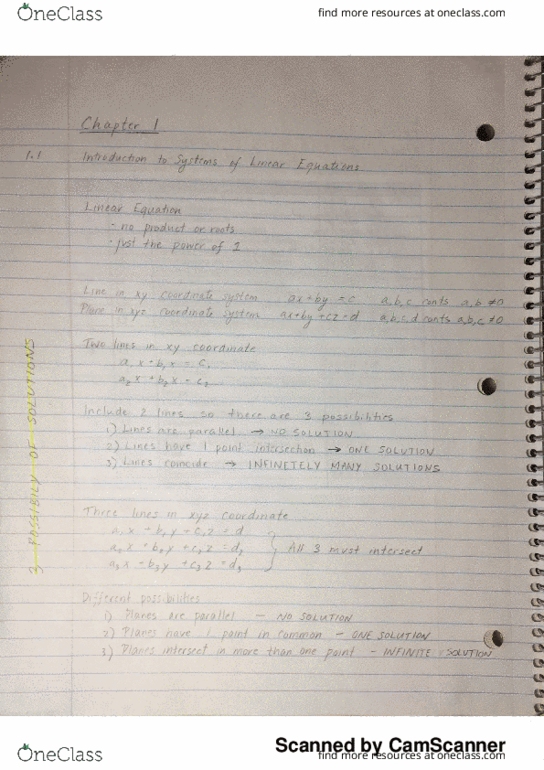 OneClass
find more resources at oneclass.com
Chapter 1
1.1 Introduction to Systems of Linear Equations
Linear Equation
- no product or roots
- just the power of 1
Line in xy coordinate system ax+by=c a,b,c cunts a,b ≠0
Plane in xyz coordinate system ax+by+cz=d a,b,c,d cunts a,b,c ≠0
Two lines in xy coordinate
a₁x+b₁x=c₁
a₂x+b₂x=c₂
3 POSSIBILY OF SOLUTIONS
Include 2 lines so there are 3 possibilities
1) Lines are parallel → NO SOLUTION
2) Lines have 1 point intersection → ONE SOLUTION
3) Lines coincide → INFINETELY MANY SOLUTIONS
Three lines in xyz coordinate
a₁x+b₁y+c₁z=d
a₂x+b₂y+c₂z=d₂
a₃x+b₃y+c₃z=d₃
All 3 must intersect
Different possibilities
1) Planes are parallel – NO SOLUTION
2) Planes have 1 point in common – ONE SOLUTION
3) Planes intersect in more than one point – INFINITE SOLUTION
Scanned by CamScanner
OneClass
find more resources at oneclass.com